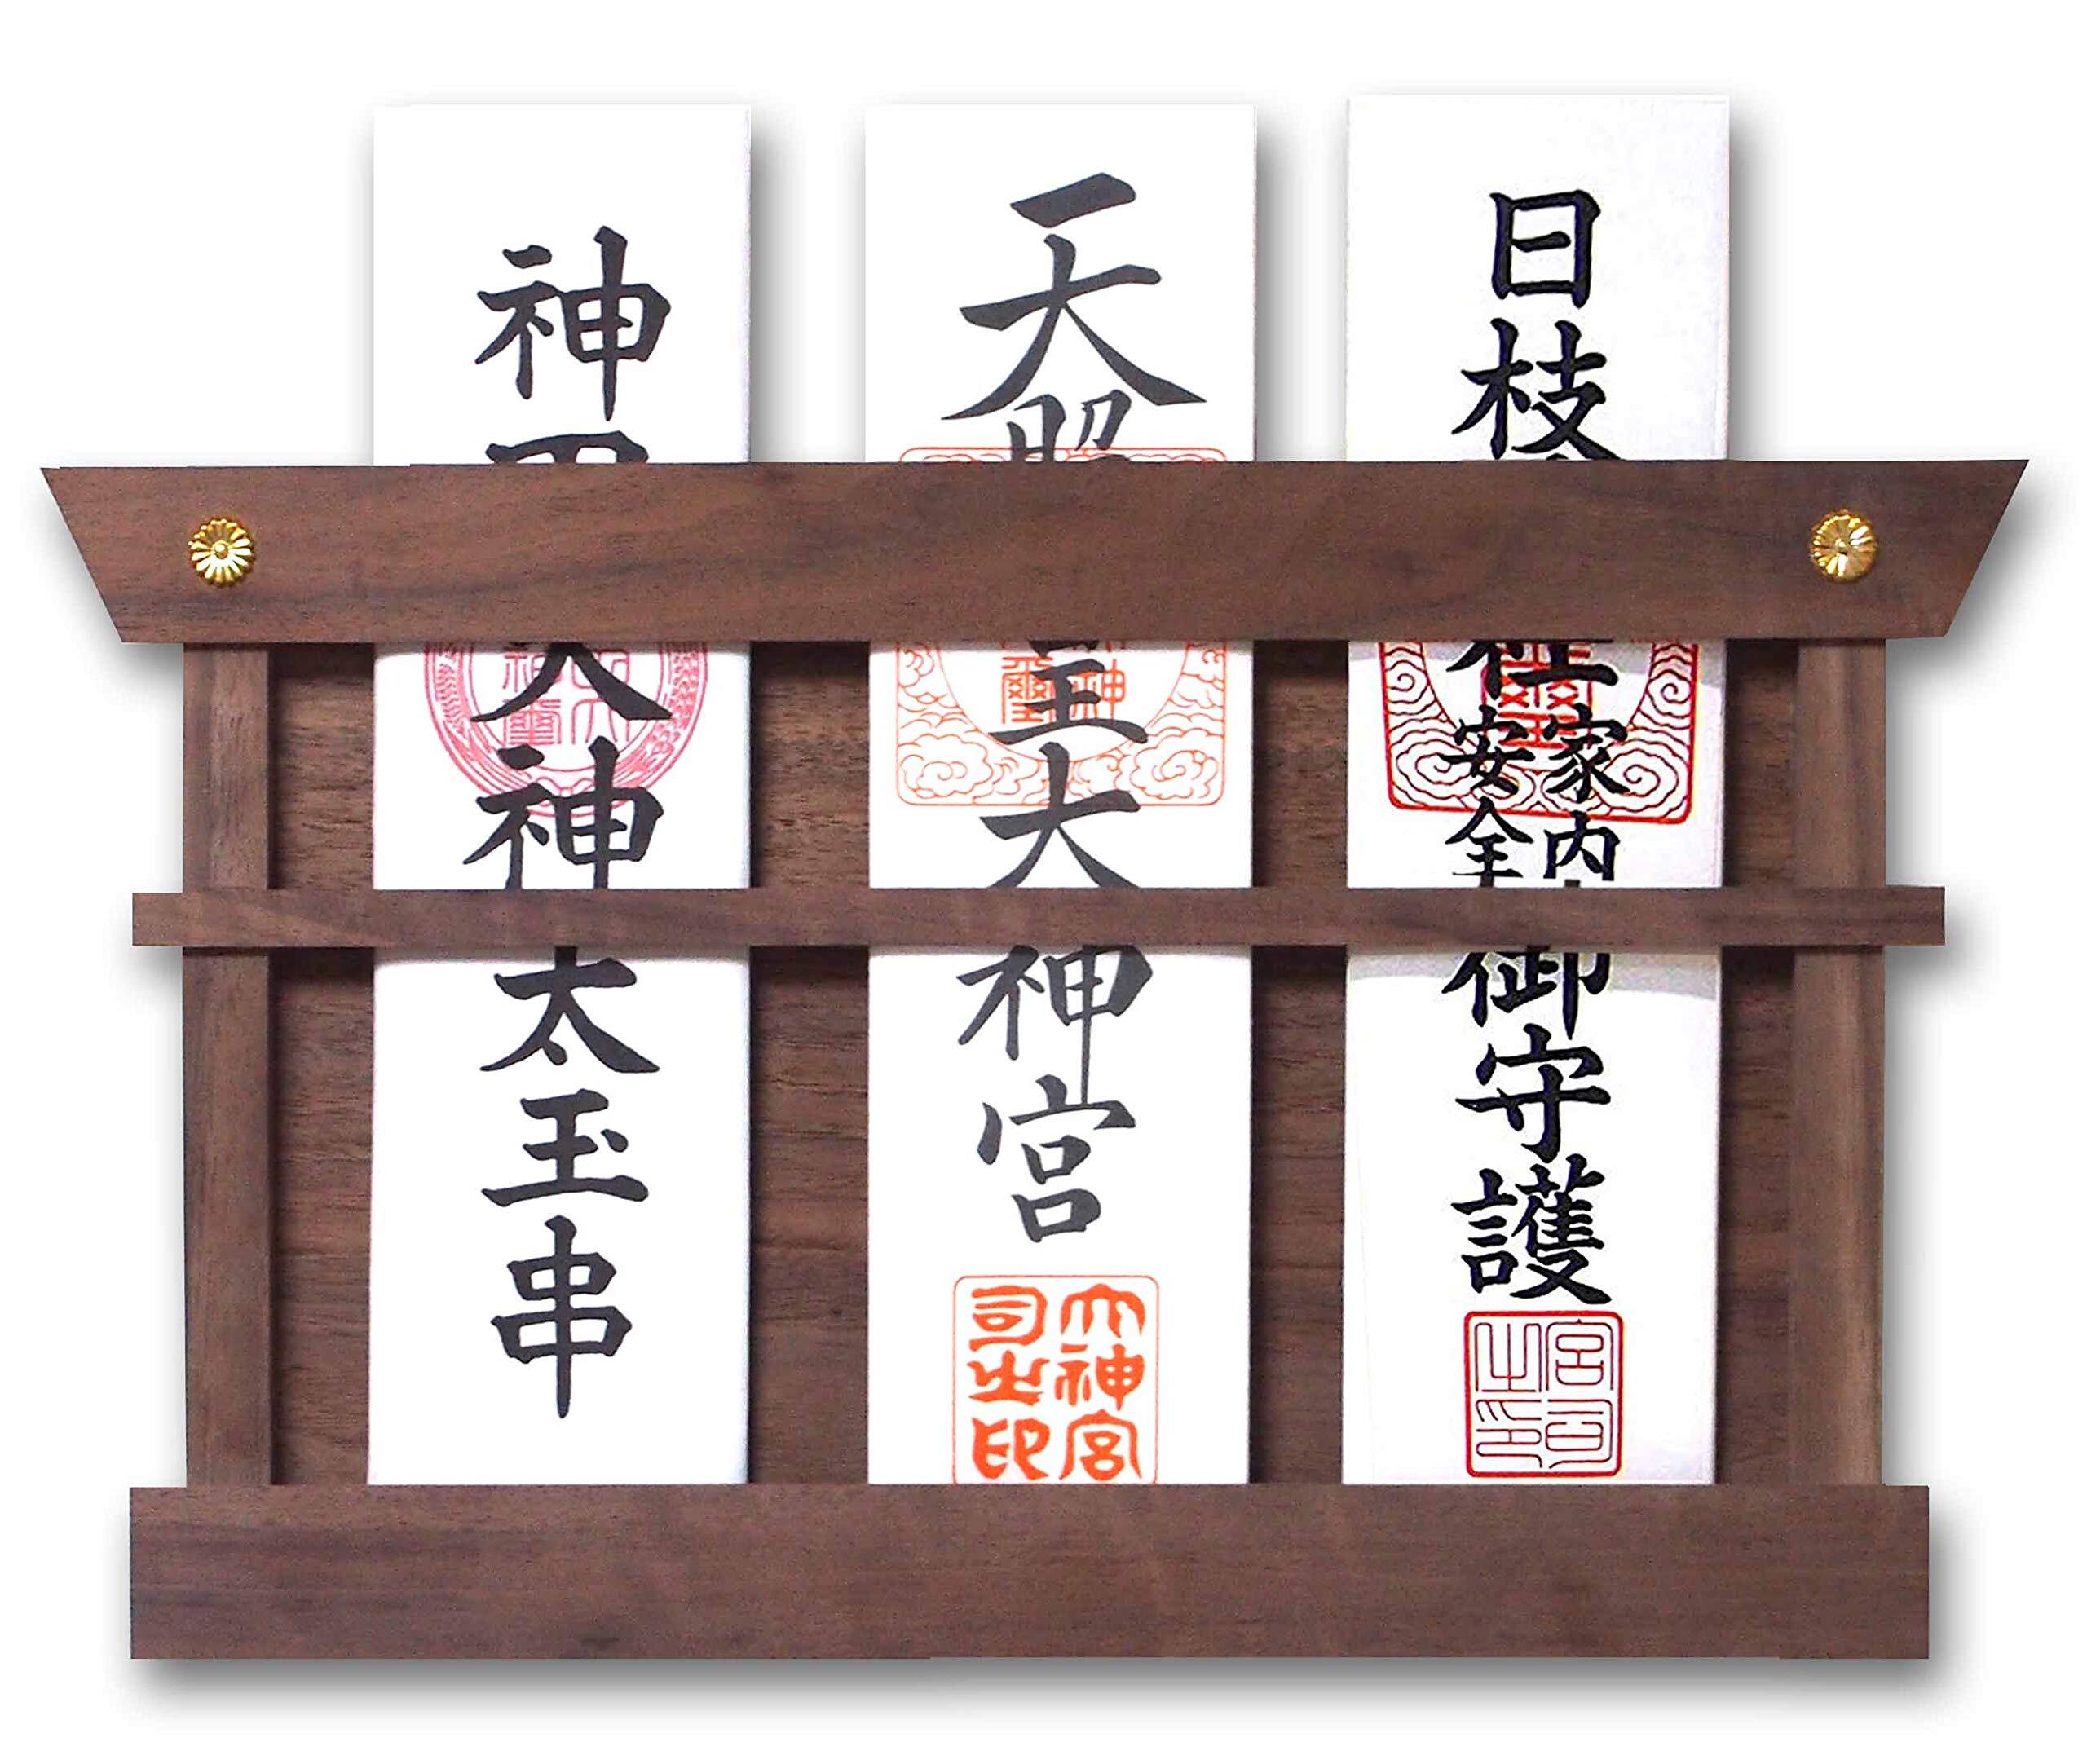 日枝
社
家内
安全
御守護
宮司
之印
天照
皇大
神宮
大神宮
司之印
神田
大神
太玉串